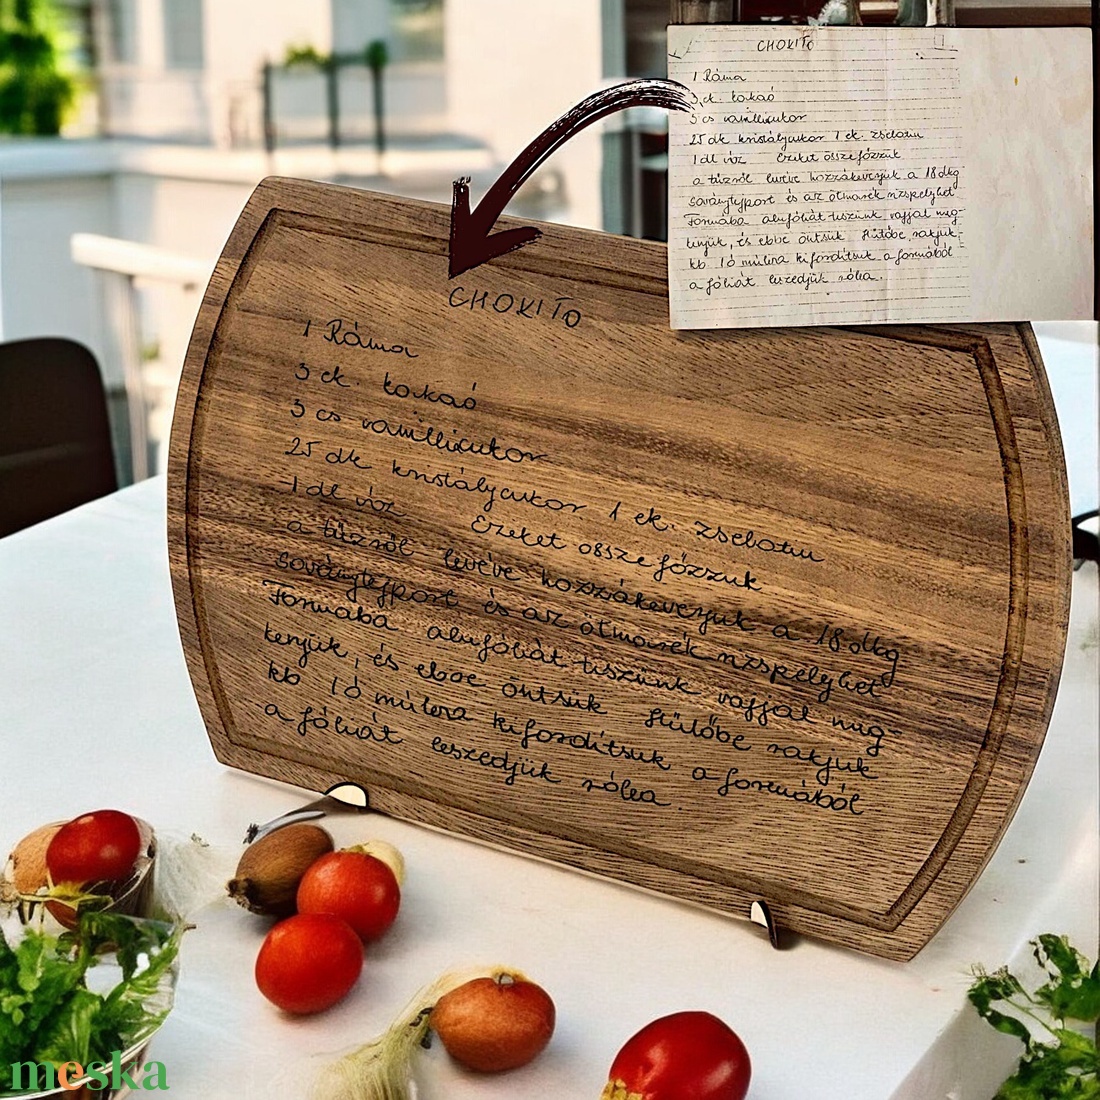 CHOKITO
1 Ráma
3 ek. kakaó
3 cs vanilliacukor
25 dk kristálycukor 1 ek. zselatin
1 dl víz Ezeket összefőzzük
a tűzről levéve hozzákeverjük a 18 dkg
soványtejport és az ötmarék rizspelyhet
Formába alufóliát teszünk vajjal meg-
kenjük, és ebbe öntsük Hűtőbe rakjuk
kb 10 múlva kifordítsuk a formából
a fóliát leszedjük róla.
CHOKITO
1 Ráma
3 ek. kakaó
3 cs vanilliacukor
25 dk kristálycukor 1 ek. zselatin
1 dl víz Ezeket összefőzzük
a tűzről levéve hozzákeverjük a 18 dkg
soványtejport és az ötmarék rizspelyhet
Formába alufóliát teszünk vajjal meg-
kenjük, és ebbe öntsük Hűtőbe rakjuk
kb 10 múlva kifordítsuk a formából
a fóliát leszedjük róla.
meska